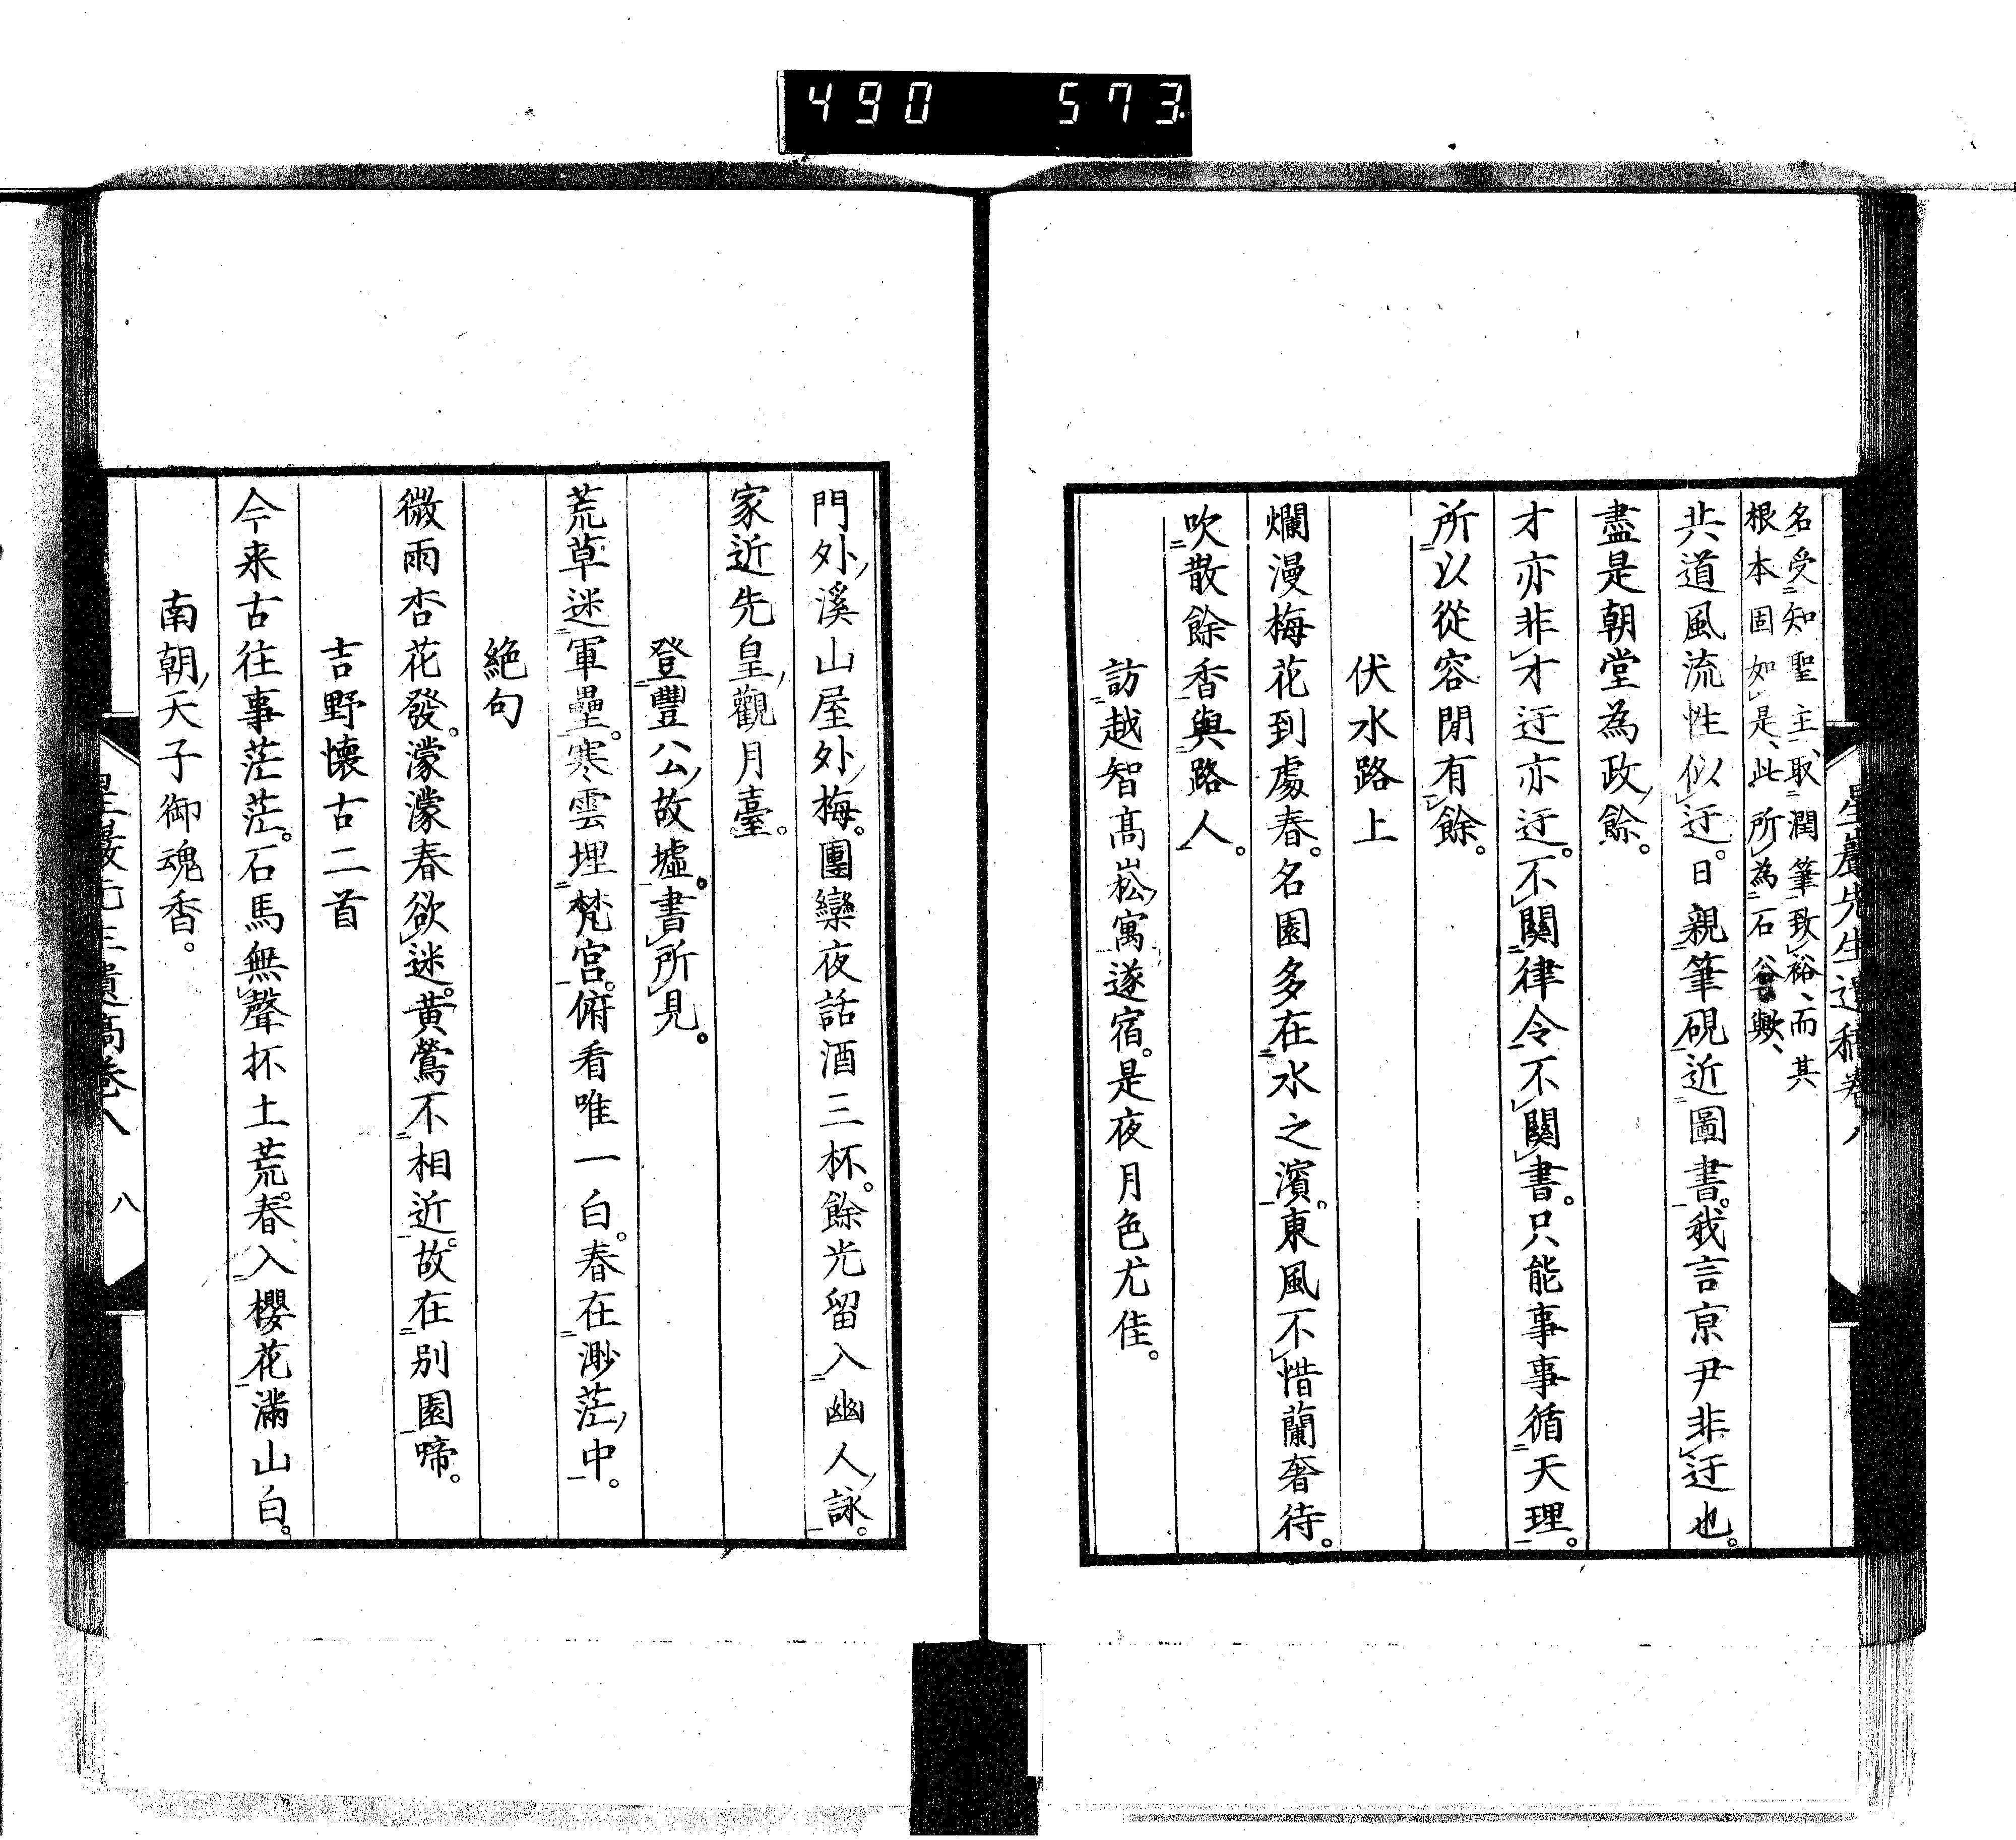 490 573
星巖先生遺稿卷八
名受知聖主、取潤筆致裕、而其
根本固如是、此所為石翁歟、
共道風流性似迂。日親筆硯近圖書。我言京尹非迂也。
盡是朝堂為政餘。
才亦非才迂亦迂。不關律令不關書。只能事事循天理。
所以從容閒有餘。
伏水路上
爛漫梅花到處春。名園多在水之濱。東風不惜蘭奢待。
吹散餘香與路人。
訪越智高崧寓遂宿。是夜月色尤佳。
門外溪山屋外梅。團欒夜話酒三杯。餘光留入幽人詠。
家近先皇觀月臺。
登豐公故墟。書所見。
荒草迷軍壘。寒雲埋梵宮。俯看唯一白。春在渺茫中。
絶句
微雨杏花發。濛濛春欲迷。黃鶯不相近。故在別園啼。
吉野懷古二首
今来古往事茫茫。石馬無聲抔土荒。春入櫻花滿山白。
南朝天子御魂香。
星巖先生遺稿卷八
八